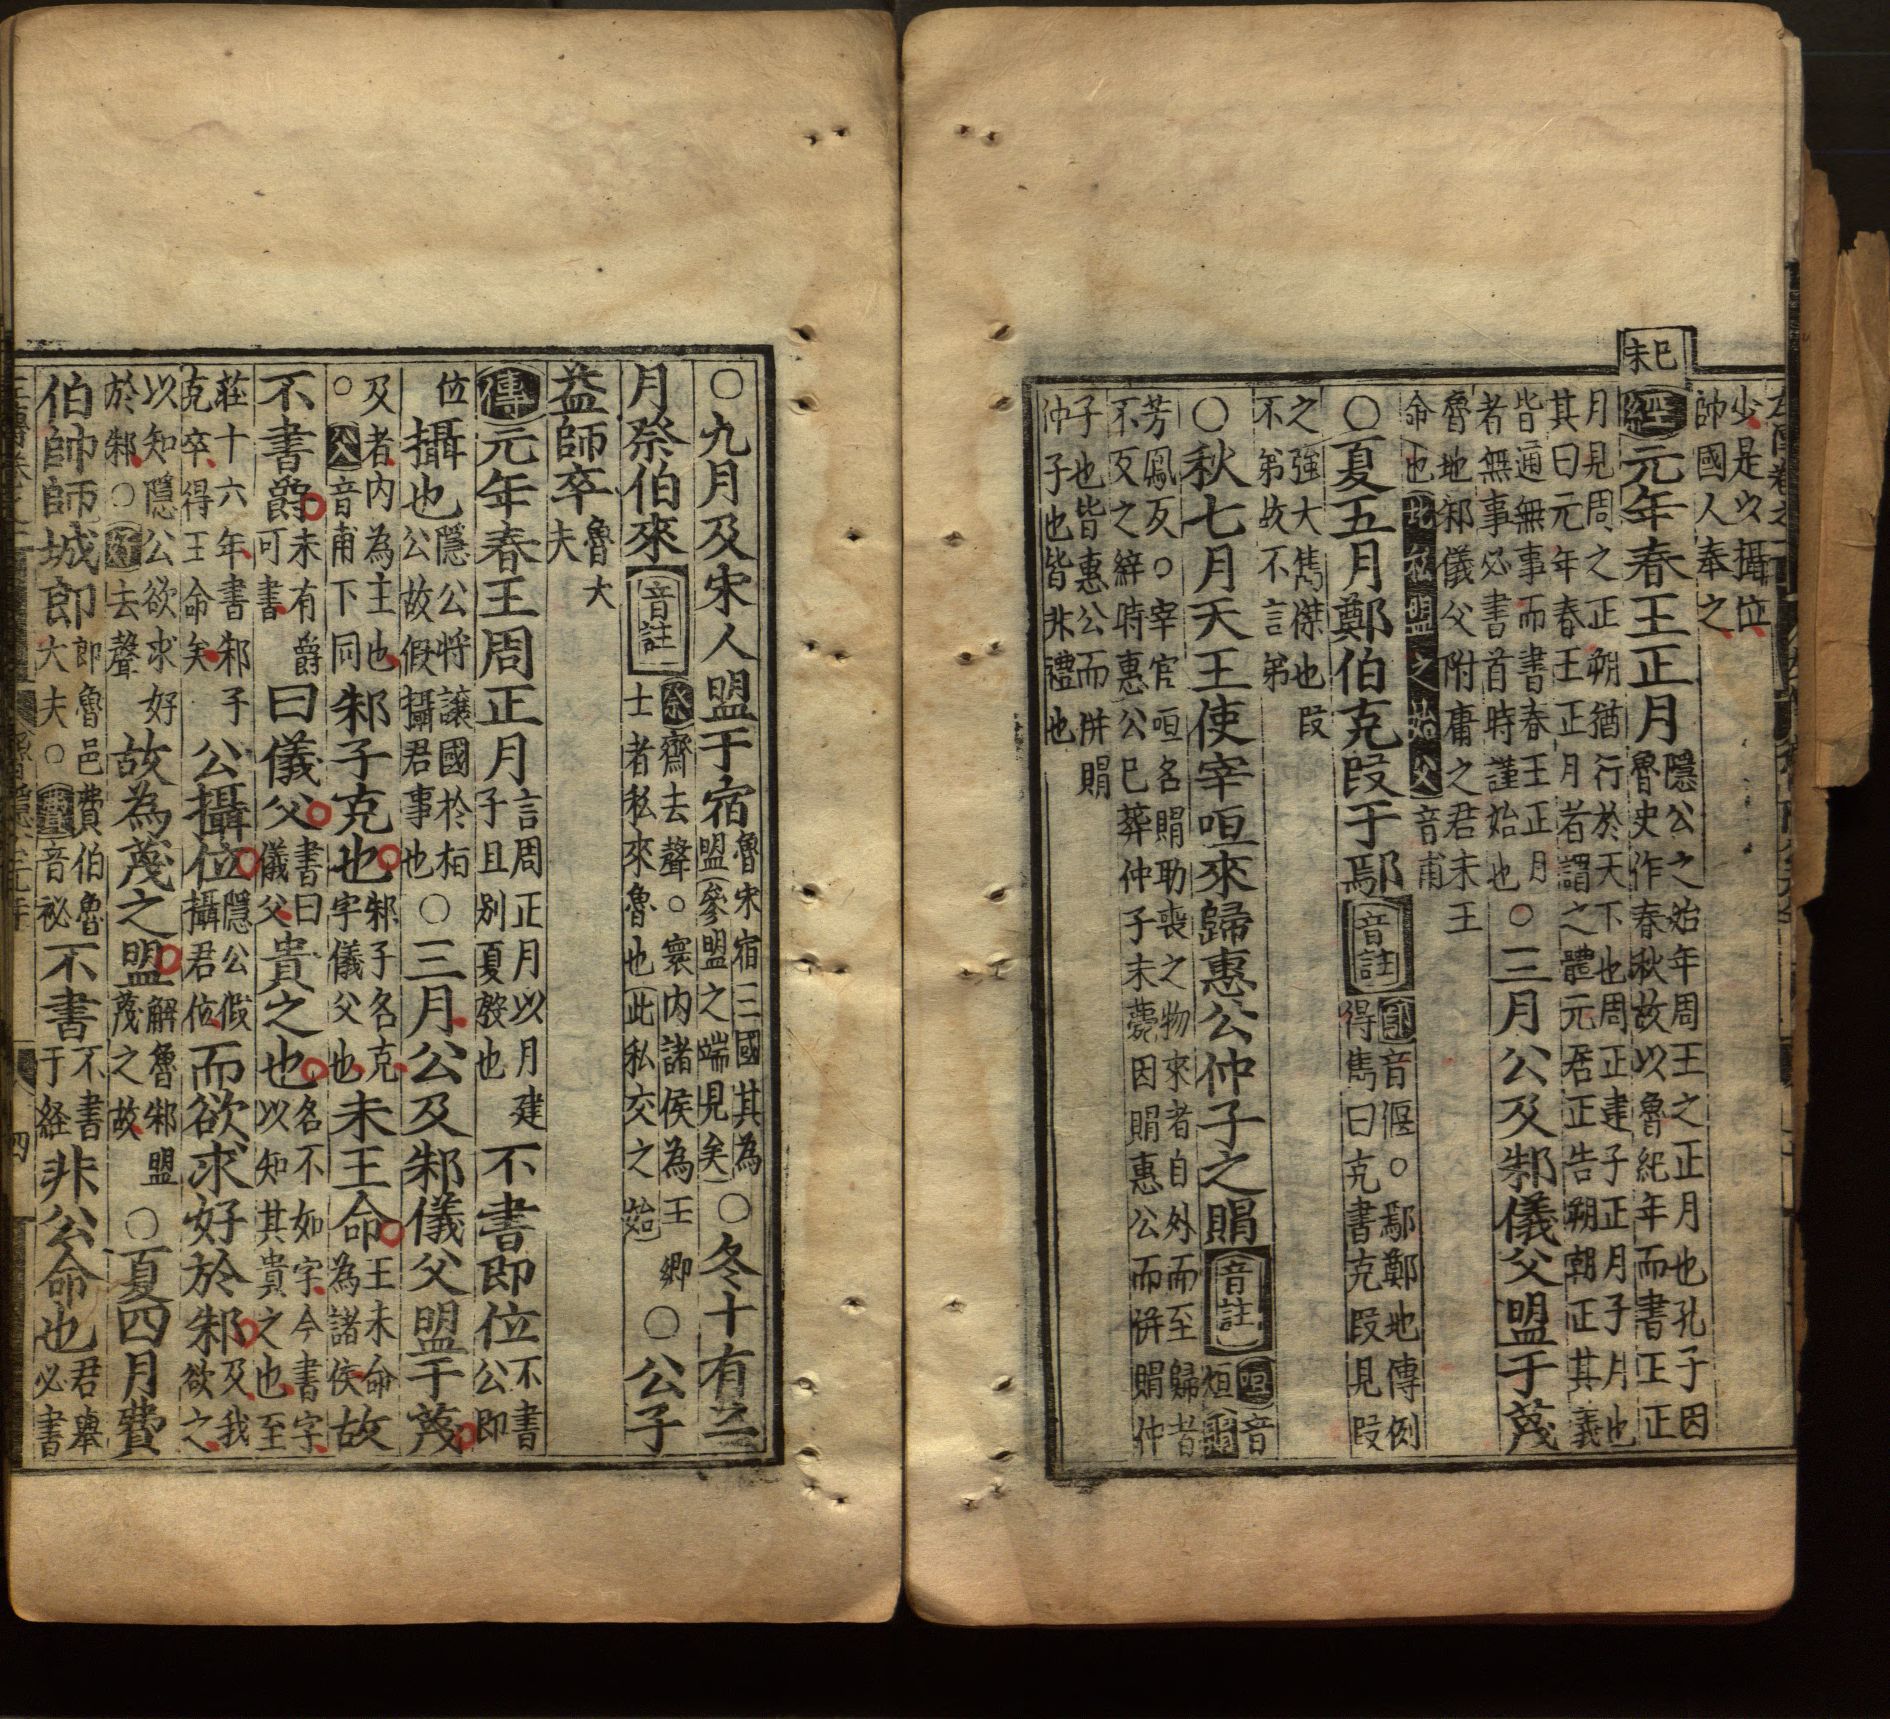 己未
少是以攝位
帥國人奉之
經元年春王正月隱公之始年周王之正月也孔子因
魯史作春秋故以魯紀年而書王正
月見周之正朔猶行於天下也周正建子正月子月也
其曰元年春王正月者謂之體元居正告朔朝正其義
皆通無事而書春王正月
者無事必書首時謹始也○三月公及邾儀父盟于蔑
魯地邾儀父附庸之君未王
命也此私盟之始父音甫
○夏五月鄭伯克段于鄢音註鄢音偃○鄢鄭地傳例
得雋曰克書克段見段
之強大雋傑也段
不弟故不言弟
○秋七月天王使宰咺來歸惠公仲子之賵音註咺音
烜賵
芳鳳反○宰官咺名賵助喪之物來者自外而至歸者
不反之辭時惠公已葬仲子未薨因賵惠公而併賵仲
子也皆惠公而併賵
仲子也皆非禮也
○九月及宋人盟于宿魯宋宿三國其為
盟參盟之端見矣○冬十有二
月祭伯來音註祭齋去聲○寰內諸侯為王卿
士者私來魯也此私交之始○公子
益師卒魯大
夫
傳元年春王周正月言周正月以月建
子且別夏殷也不書即位不書
公即
位攝也隱公將讓國於桓
公故假攝君事也○三月公及邾儀父盟于蔑
及者內為主也
○父音甫下同邾子克也邾子名克
字儀父也未王命王未命
為諸侯故
不書爵未有爵
可書曰儀父書曰
儀父貴之也名不如字今書字
以知其貴之也至
莊十六年書邾子
克卒得王命矣公攝位隱公假
攝君位而欲求好於邾及我
欲之
以知隱公欲求好
於邾○好去聲故為蔑之盟解魯邾盟
蔑之故○夏四月費
伯帥師城郎郎魯邑費伯魯
大夫○費音祕不書不書
于経非公命也君舉
必書
四